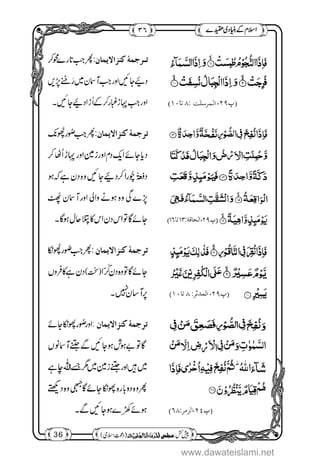 اسلام کے بنیادی عقیدے
۳۶
فَاِذَا النُّجُوْمُ طُمِسَتْ ۙ وَ اِذَا السَّمَآءُ
فُرِجَتْ ۙ وَ اِذَا الْجِبَالُ نُسِفَتْ ۙ
(پ۲۹، المرسلت: ۸ تا ۱۰)
ترجمۂ کنز الایمان: پھر جب تارے محو کر
دیئے جائیں اور جب آسمان میں رخنے پڑیں
اور جب پہاڑ غبار کر کے اُڑا دیئے جائیں۔
فَاِذَا نُفِخَ فِی الصُّوْرِ نَفْخَةٌ وَّاحِدَةٌ ۙ
وَّ حُمِلَتِ الْاَرْضُ وَ الْجِبَالُ فَدُكَّتَا
دَكَّةً وَّاحِدَةً ۙ فَیَوْمَىٕذٍ وَّقَعَتِ
الْوَاقِعَةُ ۙ وَ انْشَقَّتِ السَّمَآءُ فَهِیَ
یَوْمَىٕذٍ وَّاهِیَةٌ ۙ
(پ۲۹، الحاقۃ: ۱۳ تا ۱۶)
ترجمۂ کنز الایمان: پھر جب صور پھونک
دیا جائے ایک دم اور زمین اور پہاڑ اُٹھا کر
دفعۃً چورا کر دیئے جائیں وہ دن ہے کہ ہو
پڑے گی وہ ہونے والی اور آسمان پھٹ
جائے گا تو اس دن اس کا پتلا حال ہوگا۔
فَاِذَا نُقِرَ فِی النَّاقُوْرِ ۙ فَذٰلِكَ یَوْمَىٕذٍ
یَّوْمٌ عَسِیْرٌ ۙ عَلَى الْكٰفِرِیْنَ غَیْرُ
یَسِیْرٍ
(پ۲۹، المدثر: ۸ تا ۱۰)
ترجمۂ کنز الایمان: پھر جب صور پھونکا
جائے گا تو وہ دن کرّا (سخت) دن ہے کافروں
پر آسان نہیں۔
وَ نُفِخَ فِی الصُّوْرِ فَصَعِقَ مَنْ فِی
السَّمٰوٰتِ وَ مَنْ فِی الْاَرْضِ اِلَّا مَنْ
شَآءَ اللّٰهُ ؕ ثُمَّ نُفِخَ فِیْهِ اُخْرٰى فَاِذَا
هُمْ قِیَامٌ یَّنْظُرُوْنَ
(پ۲۴، الزمر: ۶۸)
ترجمۂ کنز الایمان: اور صور پھونکا جائے
گا تو بے ہوش ہو جائیں گے جتنے آسمانوں
میں ہیں اور جتنے زمین میں مگر جسے اللہ چاہے
پھر وہ دوبارہ پھونکا جائے گا جبھی وہ دیکھتے
ہوئے کھڑے ہو جائیں گے۔
پیش کش: مجلس (دعوتِ اسلامی)
36
www.dawateislami.net